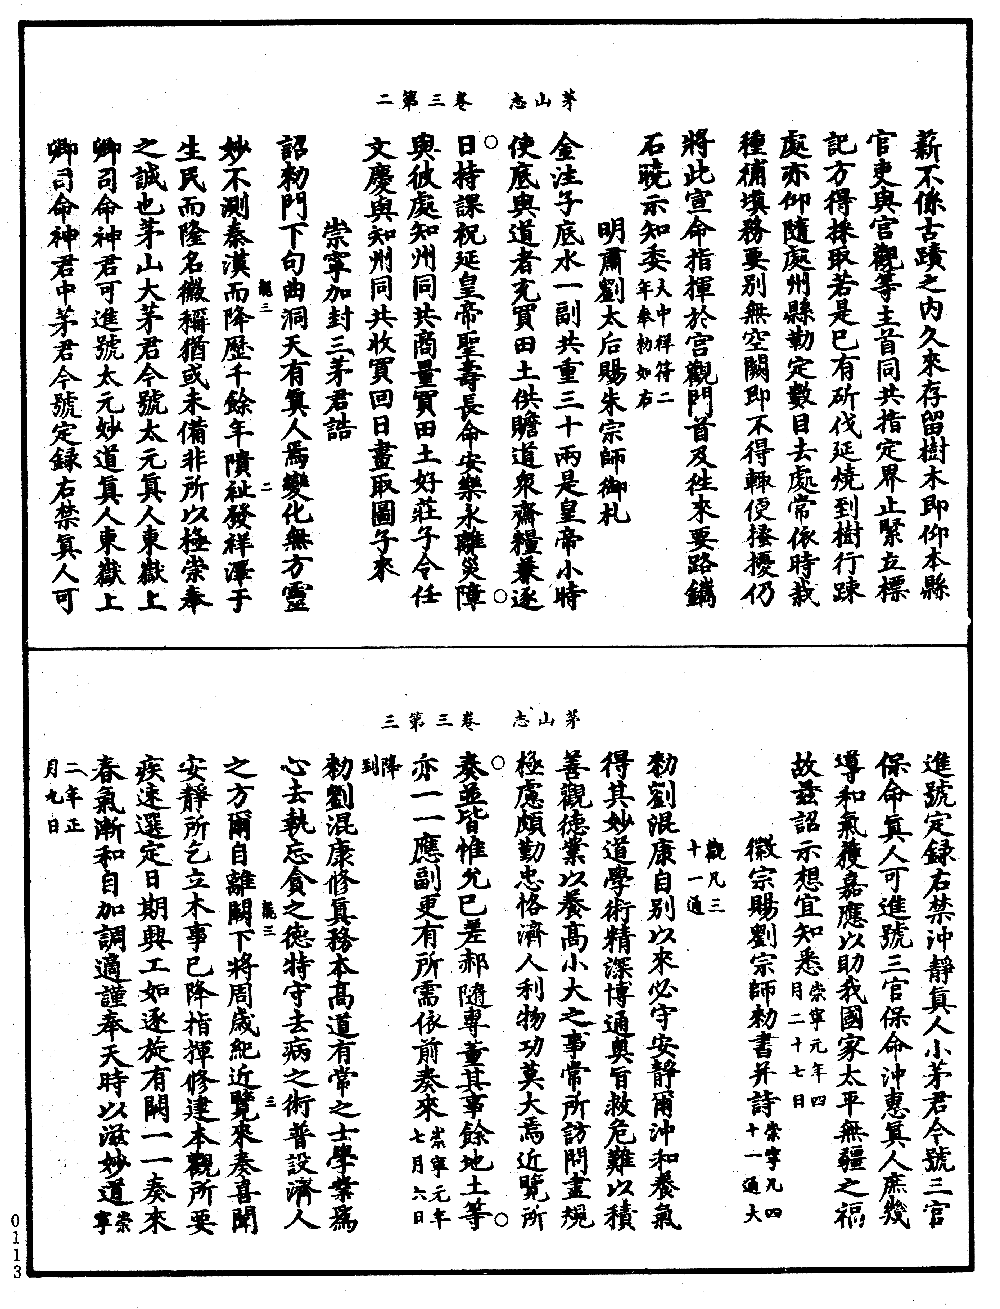 茅山志　卷三第二
薪不係古蹟之内久來存留樹木即仰本縣
官吏與官觀等主首同共指定界止緊立標
記方得採取若是已有斫伐延燒到樹行踈
處亦仰隨處州縣勒定數目去處常依時栽
種補填務要別無空闕即不得輒便搔擾仍
將此宣命指揮於宮觀門首及徃來要路鐫
石曉示知委大中祥符二年奉勑如右
明肅劉太后賜朱宗師御札
金注子底水一副共重三十兩是皇帝小時
使底與道者充買田土供贍道衆齋糧兼逐
日持課祝延皇帝聖壽長命安樂永離災障
與彼處知州同共商量買田土好莊子令任
文慶與知州同共收買回日畫取圖子來
崇寧加封三茅君誥
詔勑門下句曲洞天有真人焉變化無方靈
觀三　二
妙不測秦漢而降歷千餘年隤祉發祥澤于
生民而隆名徽稱猶或未備非所以極崇奉
之誠也茅山大茅君今號太元真人東嶽上
卿司命神君可進號太元妙道真人東嶽上
卿司命神君中茅君今號定録右禁真人可
茅山志　卷三第三
進號定録右禁沖靜真人小茅君今號三官
保命真人可進號三官保命沖惠真人庶幾
導和氣獲嘉應以助我國家太平無疆之福
故茲詔示想宜知悉崇寧元年四月二十七日
徽宗賜劉宗師勑書并詩崇寧凡四十一通大
觀凡三十一通
勑劉混康自別以來必守安靜爾沖和養氣
得其妙道學術精深博通奧旨救危難以積
善觀德業以養高小大之事常所訪問盡規
極慮頗勤忠恪濟人利物功莫大焉近覽所
奏並皆惟允已差郝隨專董其事餘地土等
亦一一應副更有所需依前奏來崇寧元年七月六日
降到
勑劉混康修真務本高道有常之士學業爲
心去執忘貪之德持守去病之術普設濟人
之方爾自離闕下將周歲紀近覽來奏喜聞
觀三　三
安靜所乞立木事已降指揮修建本觀所要
疾速選定日期興工如逐旋有闕一一奏來
春氣漸和自加調適謹奉天時以滋妙道崇寧
二年正月九日
0113